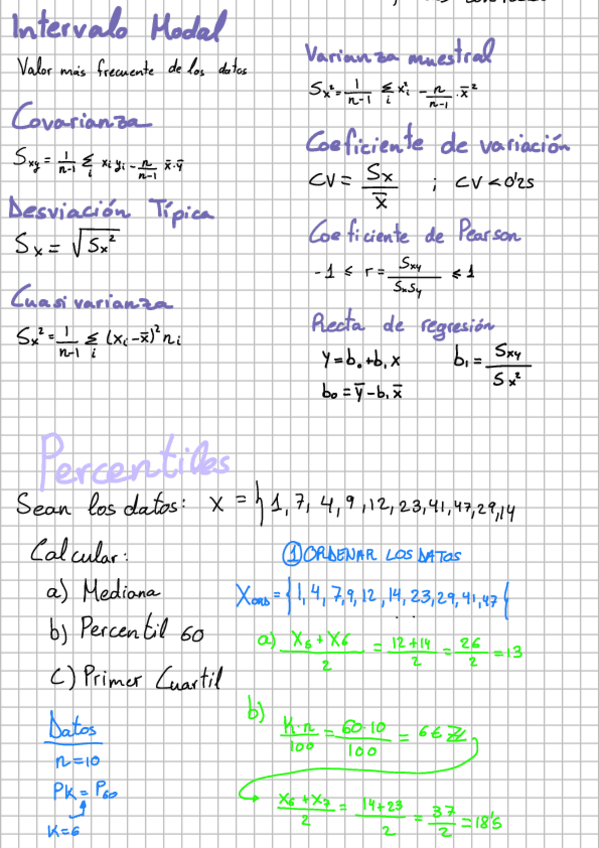 Intervalo Modal
Valor más frecuente de los datos
Covarianza
Sxy = 1/n-1 Σi xi yi - n/n-1 x̄·ȳ
Desviación Típica
Sx = √Sx²
Cuasivarianza
Sx² = 1/n-1 Σi (xi - x̄)² ni
Varianza muestral
Sx² = 1/n-1 Σi xi² - n/n-1 · x̄²
Coeficiente de variación
CV = Sx/x̄ ; CV < 0'25
Coeficiente de Pearson
-1 ≤ r = Sxy/SxSy ≤ 1
Recta de regresión
y = b₀ + b₁x b₁ = Sxy/Sx²
b₀ = ȳ - b₁x̄
Percentiles
Sean los datos: X = { 1, 7, 4, 9, 12, 23, 41, 47, 29, 14
Calcular:
a) Mediana
b) Percentil 60
c) Primer Cuartil
Datos
n = 10
PK = P60
K = 6
① ORDENAR LOS DATOS
XORD = { 1, 4, 7, 9, 12, 14, 23, 29, 41, 47 {
a) X6 + X6/2 = 12+14/2 = 26/2 = 13
b)
K·n/100 = 60·10/100 = 6 ∈ ℤ
X6 + X7/2 = 14+23/2 = 37/2 = 18'5